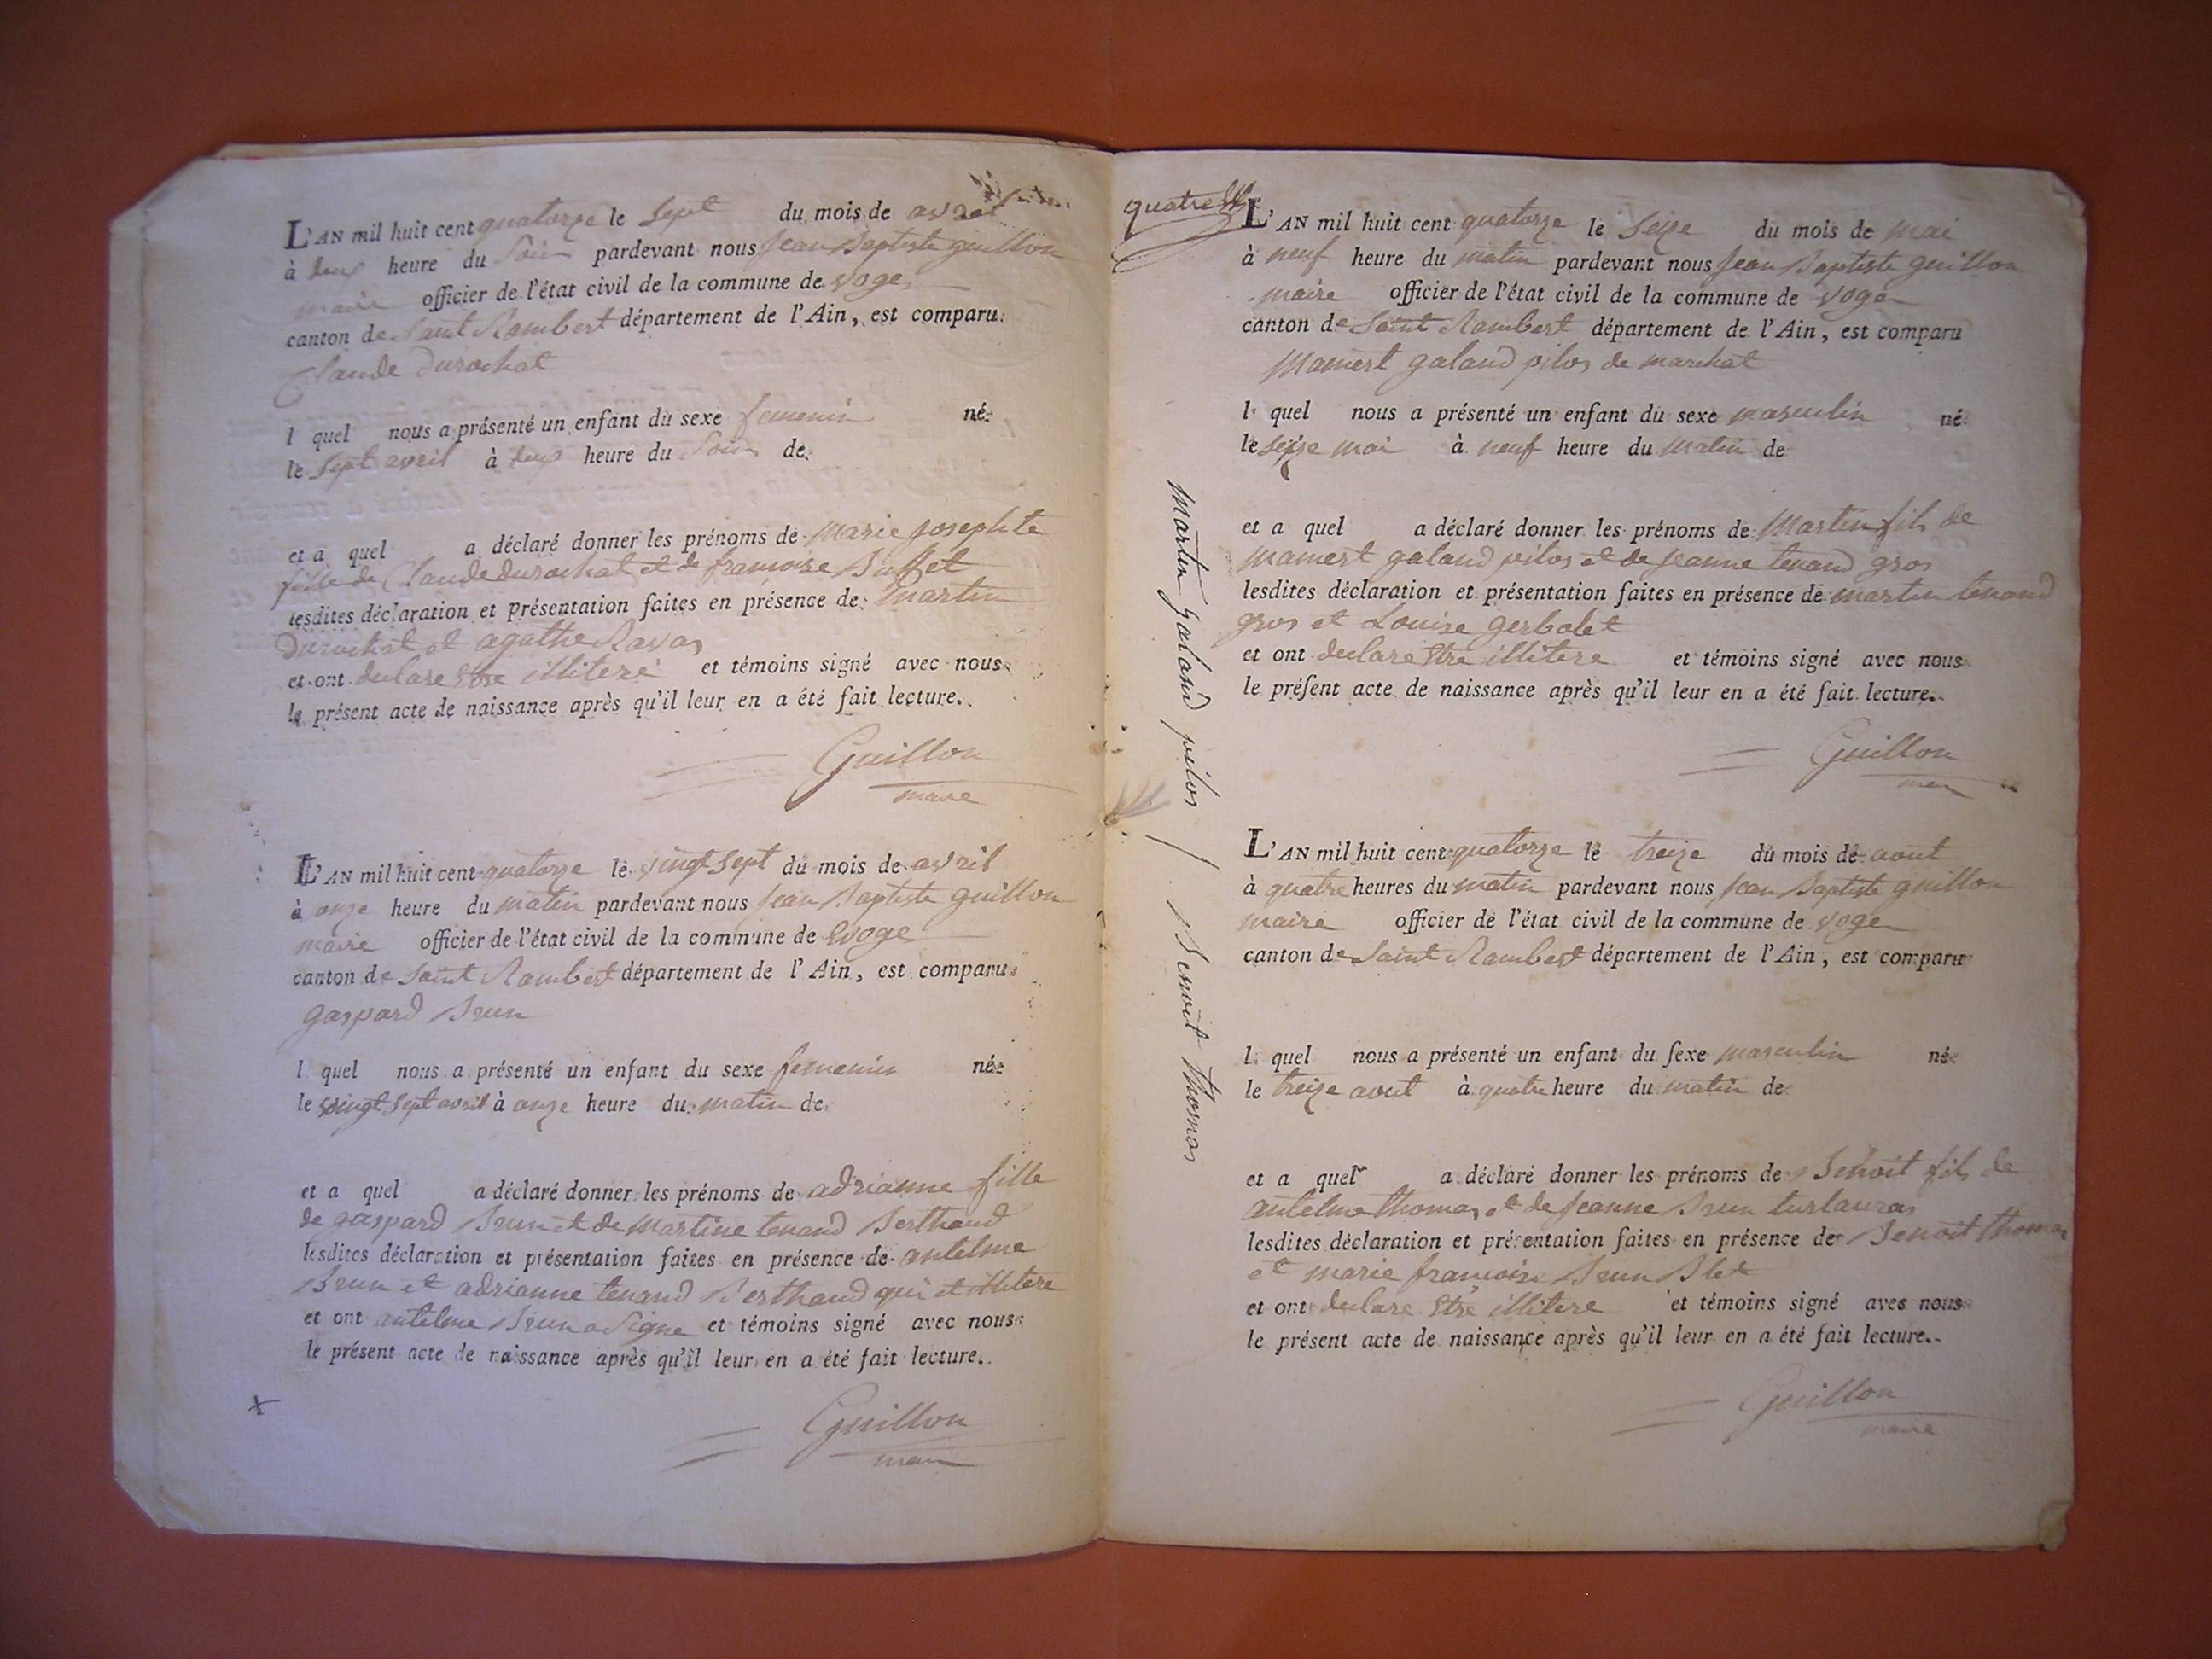 L'AN mil huit cent quatorze le sept du mois de avril
à deux heure du soir pardevant nous jean Baptiste guillon
maire officier de l'état civil de la commune de Voge
canton de Saint Rambert département de l'Ain, est comparu
Claude durochat
l quel nous a présenté un enfant du sexe femenin né
le sept avril à deux heure du soir de
et a quel a déclaré donner les prénoms de marie josephte
fille de Claude durochat et de francoise Buffet
lesdites déclaration et présentation faites en présence de martin
durochat et agathe Ravas
et ont declare Etre illiteré et témoins signé avec nous
le présent acte de naissance après qu'il leur en a été fait lecture.
Guillon
maire
L'AN mil huit cent quatorze le vingt sept du mois de avril
à onze heure du matin pardevant nous jean Baptiste guillon
maire officier de l'état civil de la commune de Evoge
canton de Saint Rambert département de l'Ain, est comparu
gaspard Brun
l quel nous a présenté un enfant du sexe femenin né
le vingt sept avril à onze heure du matin de
et a quel a déclaré donner les prénoms de adrianne fille
de gaspard Brun et de martine tenand Berthaud
lesdites déclaration et présentation faites en présence de antelme
Brun et adrianne tenand Berthaud qui et illitere
et ont antelme Brun a Signe et témoins signé avec nous
le présent acte de naissance après qu'il leur en a été fait lecture.
x
Guillon
maire
quatre
L'AN mil huit cent quatorze le Seize du mois de mai
à neuf heure du matin pardevant nous jean Baptiste guillon
maire officier de l'état civil de la commune de Voge
canton de Saint Rambert département de l'Ain, est comparu
Mamert galand pilos de marchat
l quel nous a présenté un enfant du sexe masculin né
le seize mai à neuf heure du matin de
et a quel a déclaré donner les prénoms de Martin fils de
mamert galand pilos et de jeanne tenand gros
lesdites déclaration et présentation faites en présence de martin tenand
gros et Louise gerbolet
et ont declare Etre illitere et témoins signé avec nous
le préſent acte de naissance après qu'il leur en a été fait lecture.
Guillon
maire
martin galand pilos / Benoit thomas
L'AN mil huit cent quatorze le treize du mois de aout
à quatre heures du matin pardevant nous jean Baptiste guillon
maire officier de l'état civil de la commune de Voge
canton de Saint Rambert département de l'Ain, est comparu
l quel nous a présenté un enfant du ſexe masculin né
le treize aout à quatre heure du matin de
et a quel a déclaré donner les prénoms de Benoit fils de
antelme thomas et de jeanne Brun turlauras
lesdites déclaration et présentation faites en présence de Benoit thomas
et marie francoise Brun Blet
et ont declare Etre illitere et témoins signé avec nous
le présent acte de naissance après qu'il leur en a été fait lecture.
Guillon
maire